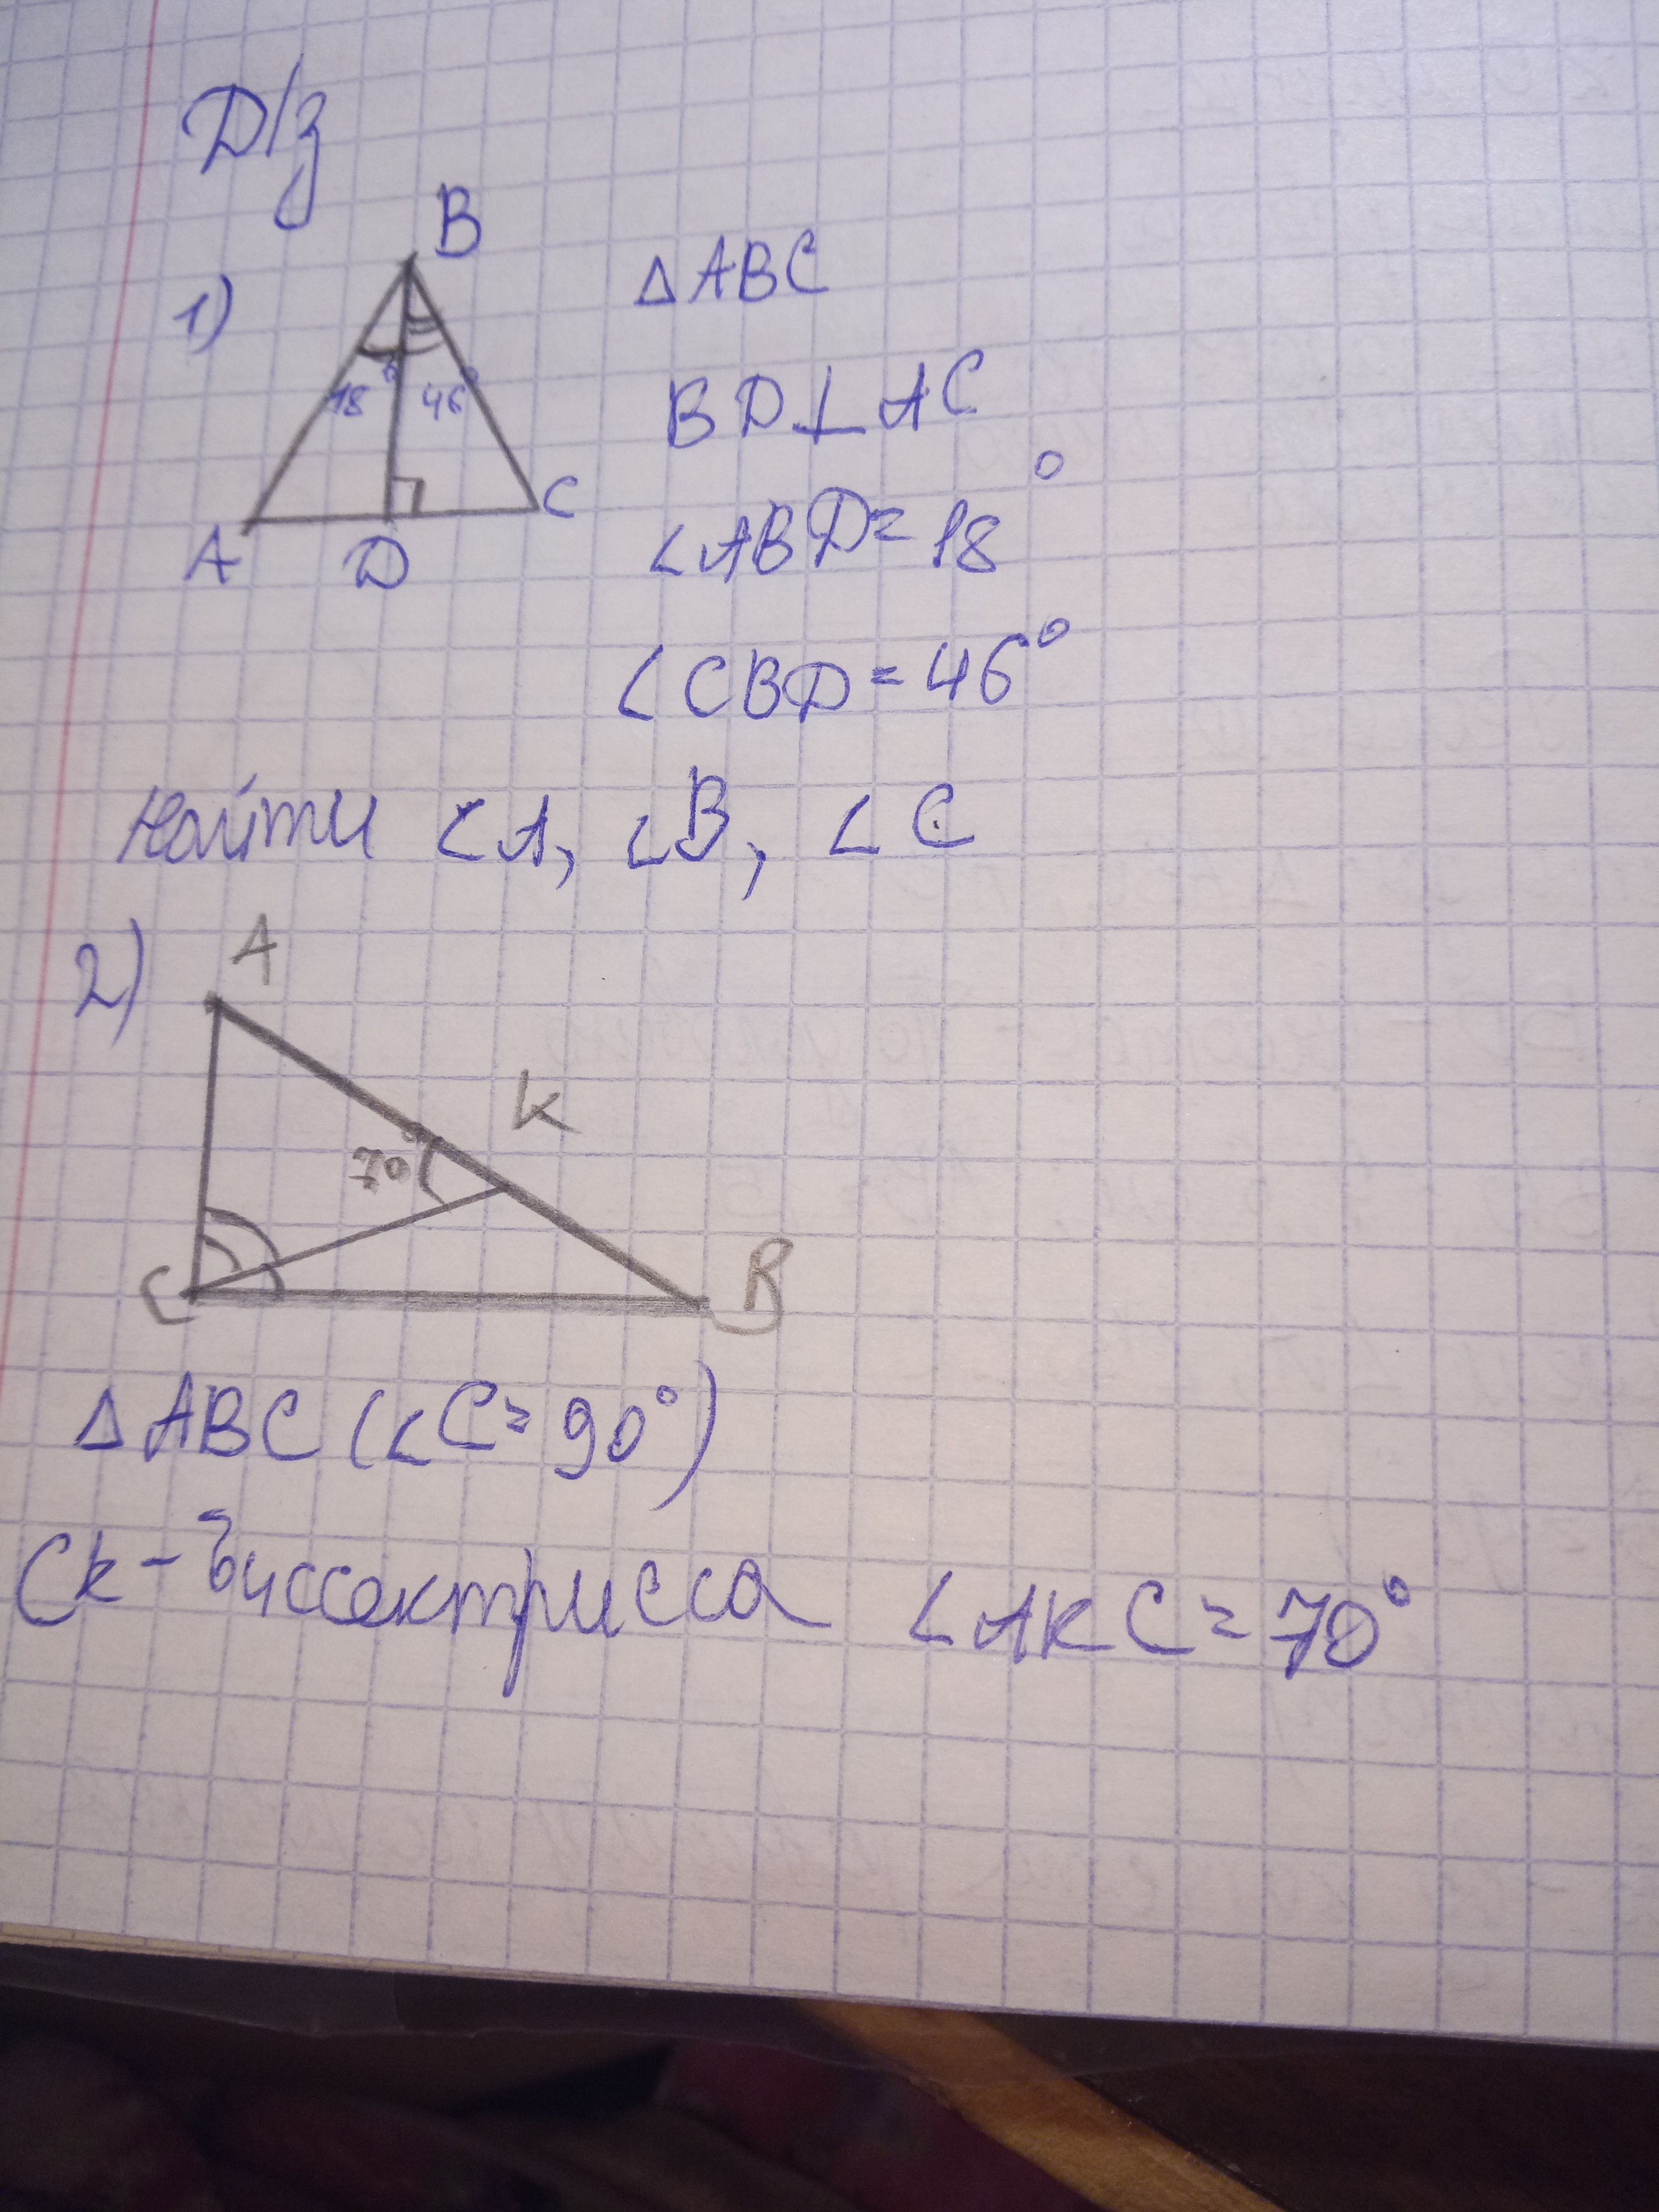 Д/з
1)
B
18° 46°
A D C
△ABC
BD⊥AC
∠ABD=18°
∠CBD=46°
Найти ∠A, ∠B, ∠C
2)
A
K
70°
C B
△ABC (∠C=90°)
CK-биссектрисса ∠AKC=70°